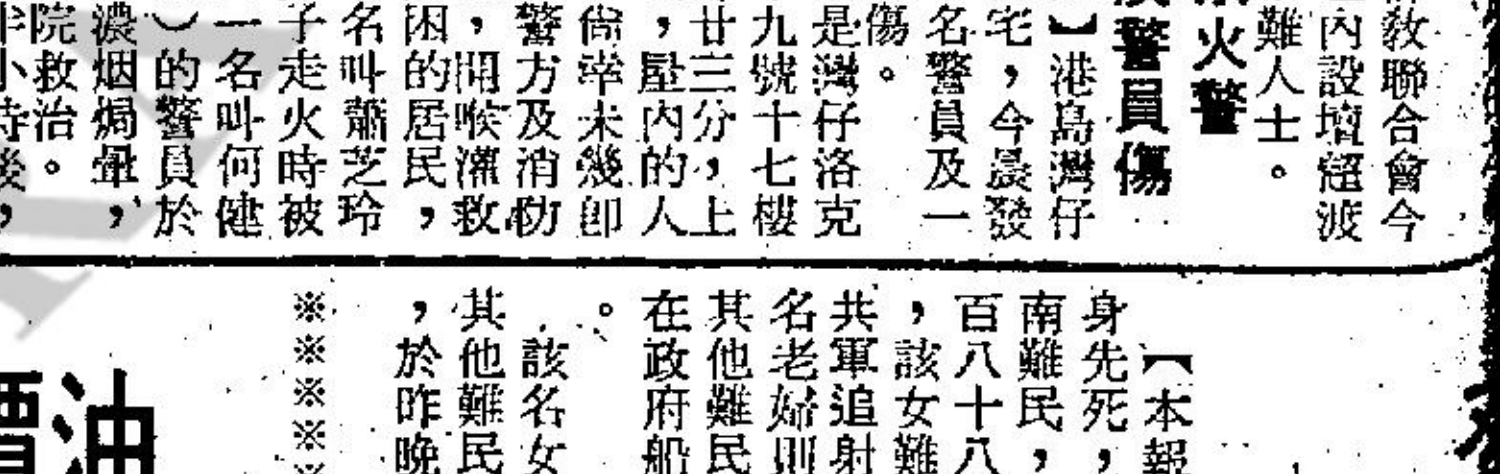 教聯合會今
內設壇超渡
難人士。
火警
警員傷
】港島灣仔
宅，今晨發
名警員及一
傷。
是灣仔洛克
九號十七樓
廿三分，上
，屋內的人
尚幸未幾卽
警方及消防
，開喉灌救
困的居民，
名叫蕭芝玲
子走火時被
一名叫何健
）的警員於
濃烟焗暈，
院救治。
半小時後，
【本報
身先死，
南難民，
百八十八
，該女難
共軍追射
名老婦則
其他難民
在政府船
。
該名女
其他難民
，於昨晚
※※※※※
油